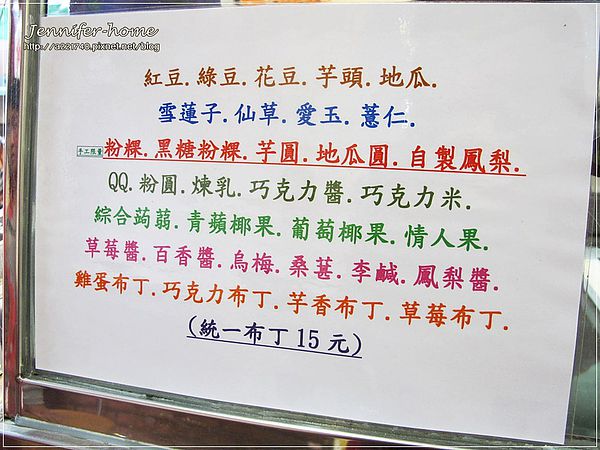 Jennifer-home
http://a221740.pixnet.net/blog
紅豆.綠豆.花豆.芋頭.地瓜.
雪蓮子.仙草.愛玉.薏仁.
手工限量粉粿.黑糖粉粿.芋圓.地瓜圓.自製鳳梨.
QQ.粉圓.煉乳.巧克力醬.巧克力米.
綜合蒟蒻.青蘋椰果.葡萄椰果.情人果.
草莓醬.百香醬.烏梅.桑葚.李鹹.鳳梨醬.
雞蛋布丁.巧克力布丁.芋香布丁.草莓布丁.
(統一布丁15元)